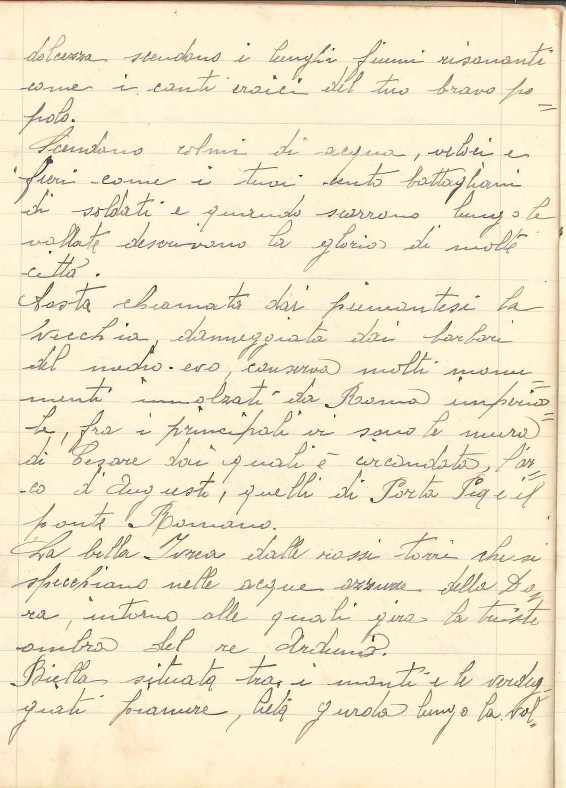 dolcezza scendono i lunghi fiumi risonanti
come i canti eroici del tuo bravo po=
polo.
Scendono colmi di acqua, veloci e
fieri come i tuoi cento battaglioni
di soldati e quando scorrono lungo le
vallate descrivono la gloria di molte
città.
Aosta chiamata dai piemontesi la
Vecchia, danneggiata dai barbari
del medio-evo, conserva molti monu=
menti innalzati da Roma imperia=
le, fra i principali vi sono le mura
di Cezare dai quali è circondata, l'ar=
co d'Augusto, quelli di Porta e il
ponte Romano.
La bella Ivrea dalle rossi torri che si
specchiano nelle acque azzurre della Do=
ra, intorno alle quali gira la triste
ombra del re Arduino.
Biella situata tra i monti e le verdeg=
gianti pianure, lieta guarda lungo la Val=